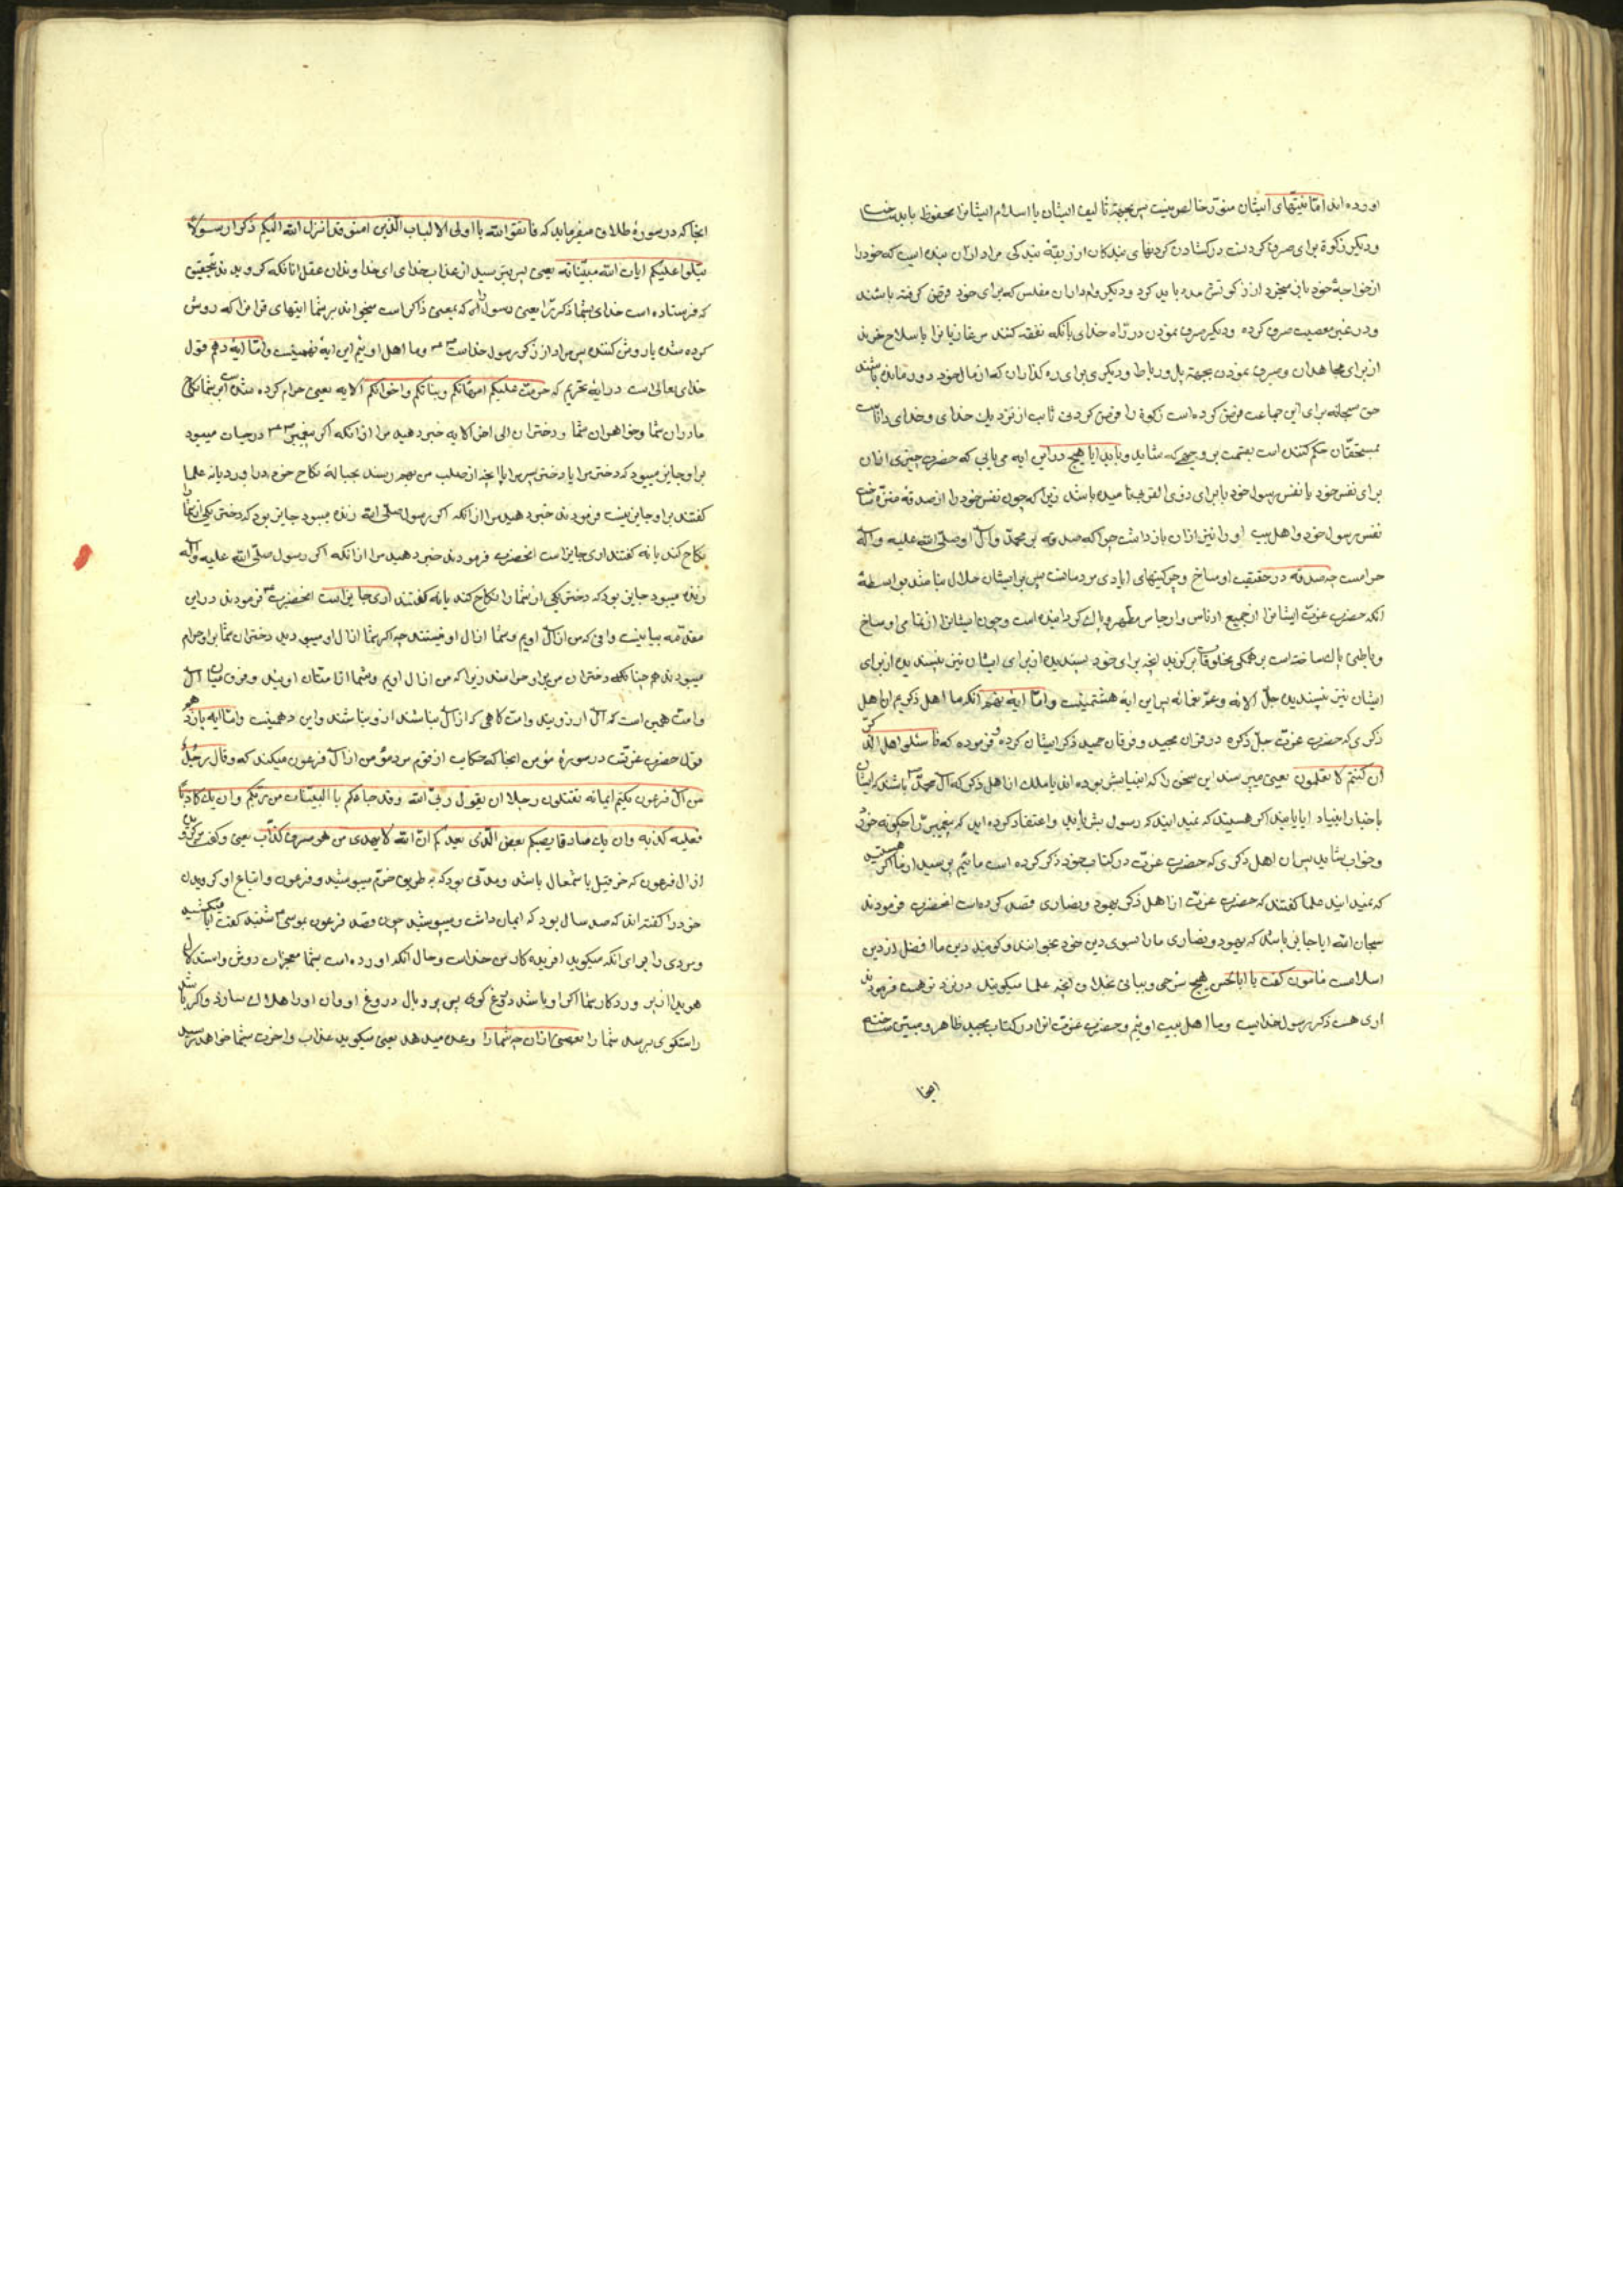 اورده اند اما نیتهای ایشان منوز خالص نیست پس بجهة تالیف ایشان با اسلام ایشانرا محفوظ باید ساخت
و دیکر زکوة برای صرف کردنست در کشادن کردنهای بندکان از ربقهٔ بندکی مراد ازان بنده ایست که خودرا
از خواجهٔ خود باز میخرد از زکوتش مدد باید کرد و دیکر وام داران مفلس که برای خود قرض کرفته باشند
و در غیر معصیت صرف کرده و دیکر صرف نمودن در راه خدای بانکه نفقه کنند بر غازیانرا یا سلاح خرند
از برای مجاهدان و صرف نمودن بجهة پل و رباط و دیکری برای ره کذاران که از مال خود دور مانده باشند
حق سبحانه برای این جماعت فرض کرده است زکوة را فرض کردنی ثابت از نزدیک خدای و خدای داناست
بمستحقان حکم کننده است بقسمت بر وجهی که شاید و باید ایا هیچ در این ایه می یابی که حضرت چیزی ازان
برای نفس خود یا نفس رسول خود یا برای ذی القربی نامیده باشد زیرا که چون نفس خودرا از صدقه منزه ساخت
نفس رسول خود و اهل بیت اورا نیز ازان بازداشت چرا که صدقه بر محمد و آل او صلی الله علیه و آله
حرامست چه صدقه در حقیقت اوساخ و چرکینهای ایادی مردمانست پس بر ایشان حلال نباشد بواسطهٔ
آنکه حضرت عزت ایشانرا از جمیع ادناس و ارجاس مطهر و پاک کردانیده است و چون ایشانرا از تمامی اوساخ
پاک ساخته است بر همکی مخلوقات برکزید انچه برای خود پسندیده از برای ایشان نیز پسندیده از برای
ایشان نیز نپسندیده جل آلائه و عز نعمائه پس این ایهٔ هشتمینست و اما ایهٔ نهم آنکه ما اهل ذکریم ان اهل
ذکری که حضرت عزت جل ذکره در قران مجید و فرقان حمید ذکر ایشان کرده و فرموده که فاسئلوا اهل الذکر
ان کنتم لا تعلمون یعنی بپرسید این سخن را که انبیا بشر بوده اند یا ملک از اهل ذکر که آل محمد باشند که ایشان
باخبار انبیاء اکر هستید که نمیدانید که رسول بشر باید و اعتقاد کرده اید که پیغمبر را چکونه خورد
و خواب شاید پس ان اهل ذکری که حضرت عزت در کتاب خود ذکر کرده است مائیم بپرسید از ما اکر هستید
که نمیدانید علما کفتند که حضرت عزت از اهل ذکر یهود و نصاری قصد کرده است انحضرت فرمودند
سبحان الله ایا جایز باشد که یهود و نصاری مارا بسوی دین خود بخوانند و کویند دین ما افضل از دین
اسلامست مامون کفت یا اباالحسن هیچ شرحی و بیانی بخلاف انچه علما میکویند در نزد تو هست فرمودند
اری هست ذکر رسول خداست و ما اهل بیت اوئیم و حضرت عزت انرا در کتاب مجید ظاهر و مبین ساخته
انجا
انجا که در سورهٔ طلاق میفرماید که فاتقوا الله یا اولی الالباب الذین امنوا قد انزل الله الیکم ذکرا رسولا
یتلوا علیکم ایات الله مبینات یعنی پس بترسید از عذاب خدای ای خداوندان عقل انانکه کرویدند بتحقیق
که فرستاده است خدای بشما ذکر را یعنی رسول که بمعنی ذاکر است میخواند بر شما ایتهای قرانرا که روشن
کرده شده یا روشن کننده پس مراد از ذکر رسول خداست و ما اهل اوئیم این ایهٔ نهمینست و اما ایهٔ دهم قول
خدای تعالی است در ایهٔ تحریم که حرمت علیکم امهاتکم و بناتکم و اخواتکم الایه یعنی حرام کرده شده است بر شما نکاح
مادران شما و خواهران شما و دختران الی اخر الایه خبر دهید مرا ازانکه اکر پیغمبر در حیات میبود
بر او جایز میبود که دختر مرا یا دختر پسر مرا یا انچه از صلب من بهم رسند بحبالهٔ نکاح خود در اورد یا نه علما
کفتند بر او جایز نیست فرمودند خبر دهید مرا ازانکه اکر رسول صلی الله زنده میبود جایز بود که دختر یکی از شما را
نکاح کند یا نه کفتند اری جایز است انحضرت فرمودند خبر دهید مرا ازانکه اکر رسول صلی الله علیه و آله
زنده میبود جایز بود که دختر یکی از شما را نکاح کند یا نه کفتند اری جایز است انحضرت فرمودند در این
مقدمه بیانیست وافی که من از آل اویم و شما از ال او نیستید چه اکر شما از ال او میبودید دختران شما بر او حرام
میبودند هم چنانکه دختران من بر او حرامند زیرا که من از ال اویم و شما از امتان اویند و فرق میان آل
و امت همین است که آل ازویند و امت کاهی که از آل نباشند ازو نباشند و این دهمینست و اما ایه یازدهم
قول حضرت عزتست در سورهٔ مؤمن انجا که حکایت از قوم مرد مؤمن از آل فرعون میکند که و قال رجل
من آل فرعون یکتم ایمانه تقتلون رجلا ان یقول ربی الله و قد جاءکم بالبینات من ربکم و ان یک کاذبا
فعلیه کذبه و ان یک صادقا یصبکم بعض الذی یعدکم ان الله لا یهدی من هو مسرف کذاب یعنی و کفت مردی
از ال فرعون که خرقیل یا شمعان باشد و مدتی بود که به طریق حزم میپوشید و فرعون و اتباع او کرویدن
خودرا کفته اند که صد سال بود که ایمان داشت و میپوشید چون قصد فرعون بموسی شنید کفت ایا میکشید
مردی را برای انکه میکوید افریدکار من خداست و حال انکه اورده است بشما معجزات روشن و استدلال
هویدا از پروردکار شما اکر او باشد دروغ کوی پس برو وبال دروغ او و ان اورا هلاک سازد و اکر باشد
راستکوی برسد شما را بعضی ازان چه شما را وعده میدهد یعنی میکوید عذاب و اخرت بشما خواهد رسید